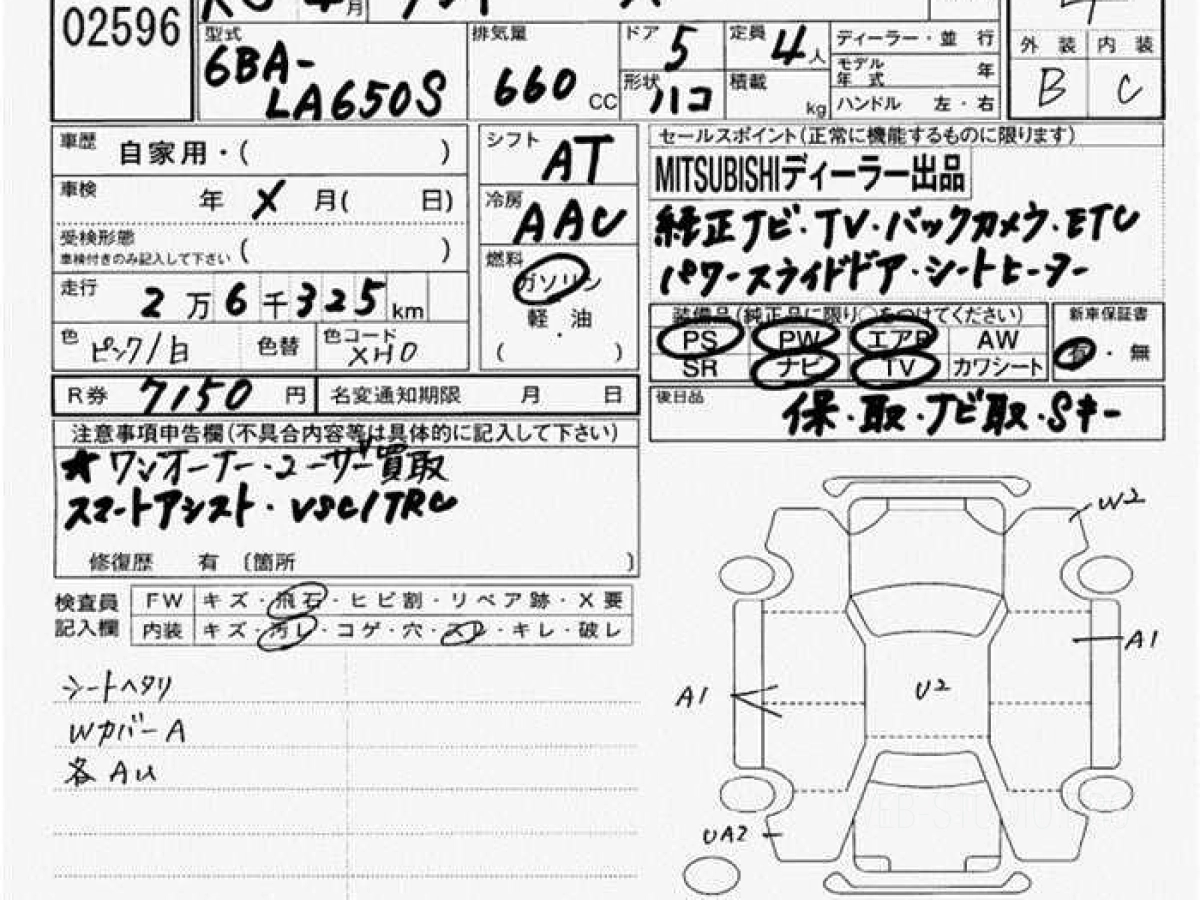 02596
月
型式 6BA-LA650S
排気量 660 CC
ドア 5
定員 4 人
形状 ハコ
積載 kg
ディーラー・並 行
モデル年式 年
ハンドル 左・右
外 装 内 装
B C
車歴 自家用・( )
車検 年 X 月( 日)
受検形態 車検付きのみ記入して下さい ( )
走行 2万6千325km
色 ピンク/白
色替
色コード XH0
シフト AT
冷房 AAC
燃料 ガソリン
・
軽 油
( )
セールスポイント(正常に機能するものに限ります)
MITSUBISHIディーラー出品
純正ナビ・TV・バックカメラ・ETC
パワースライドドア・シートヒーター
装備品(純正品に限り○をつけてください)
PS PW エアB AW
SR ナビ TV カワシート
新車保証書
有・無
R券 7150 円
名変通知期限 月 日
後日品 保・取・ナビ取・Sキー
注意事項申告欄(不具合内容等は具体的に記入して下さい)
★ワンオーナー・ユーザー買取
スマートアシスト・VSC/TRC
修復歴 有 〔箇所 〕
検査員記入欄
FW キズ・飛石・ヒビ割・リペア跡・X要
内装 キズ・汚レ・コゲ・穴・スレ・キレ・破レ
シートヘタリ
WカバーA
各AU
W2
A1
A1
U2
UA2